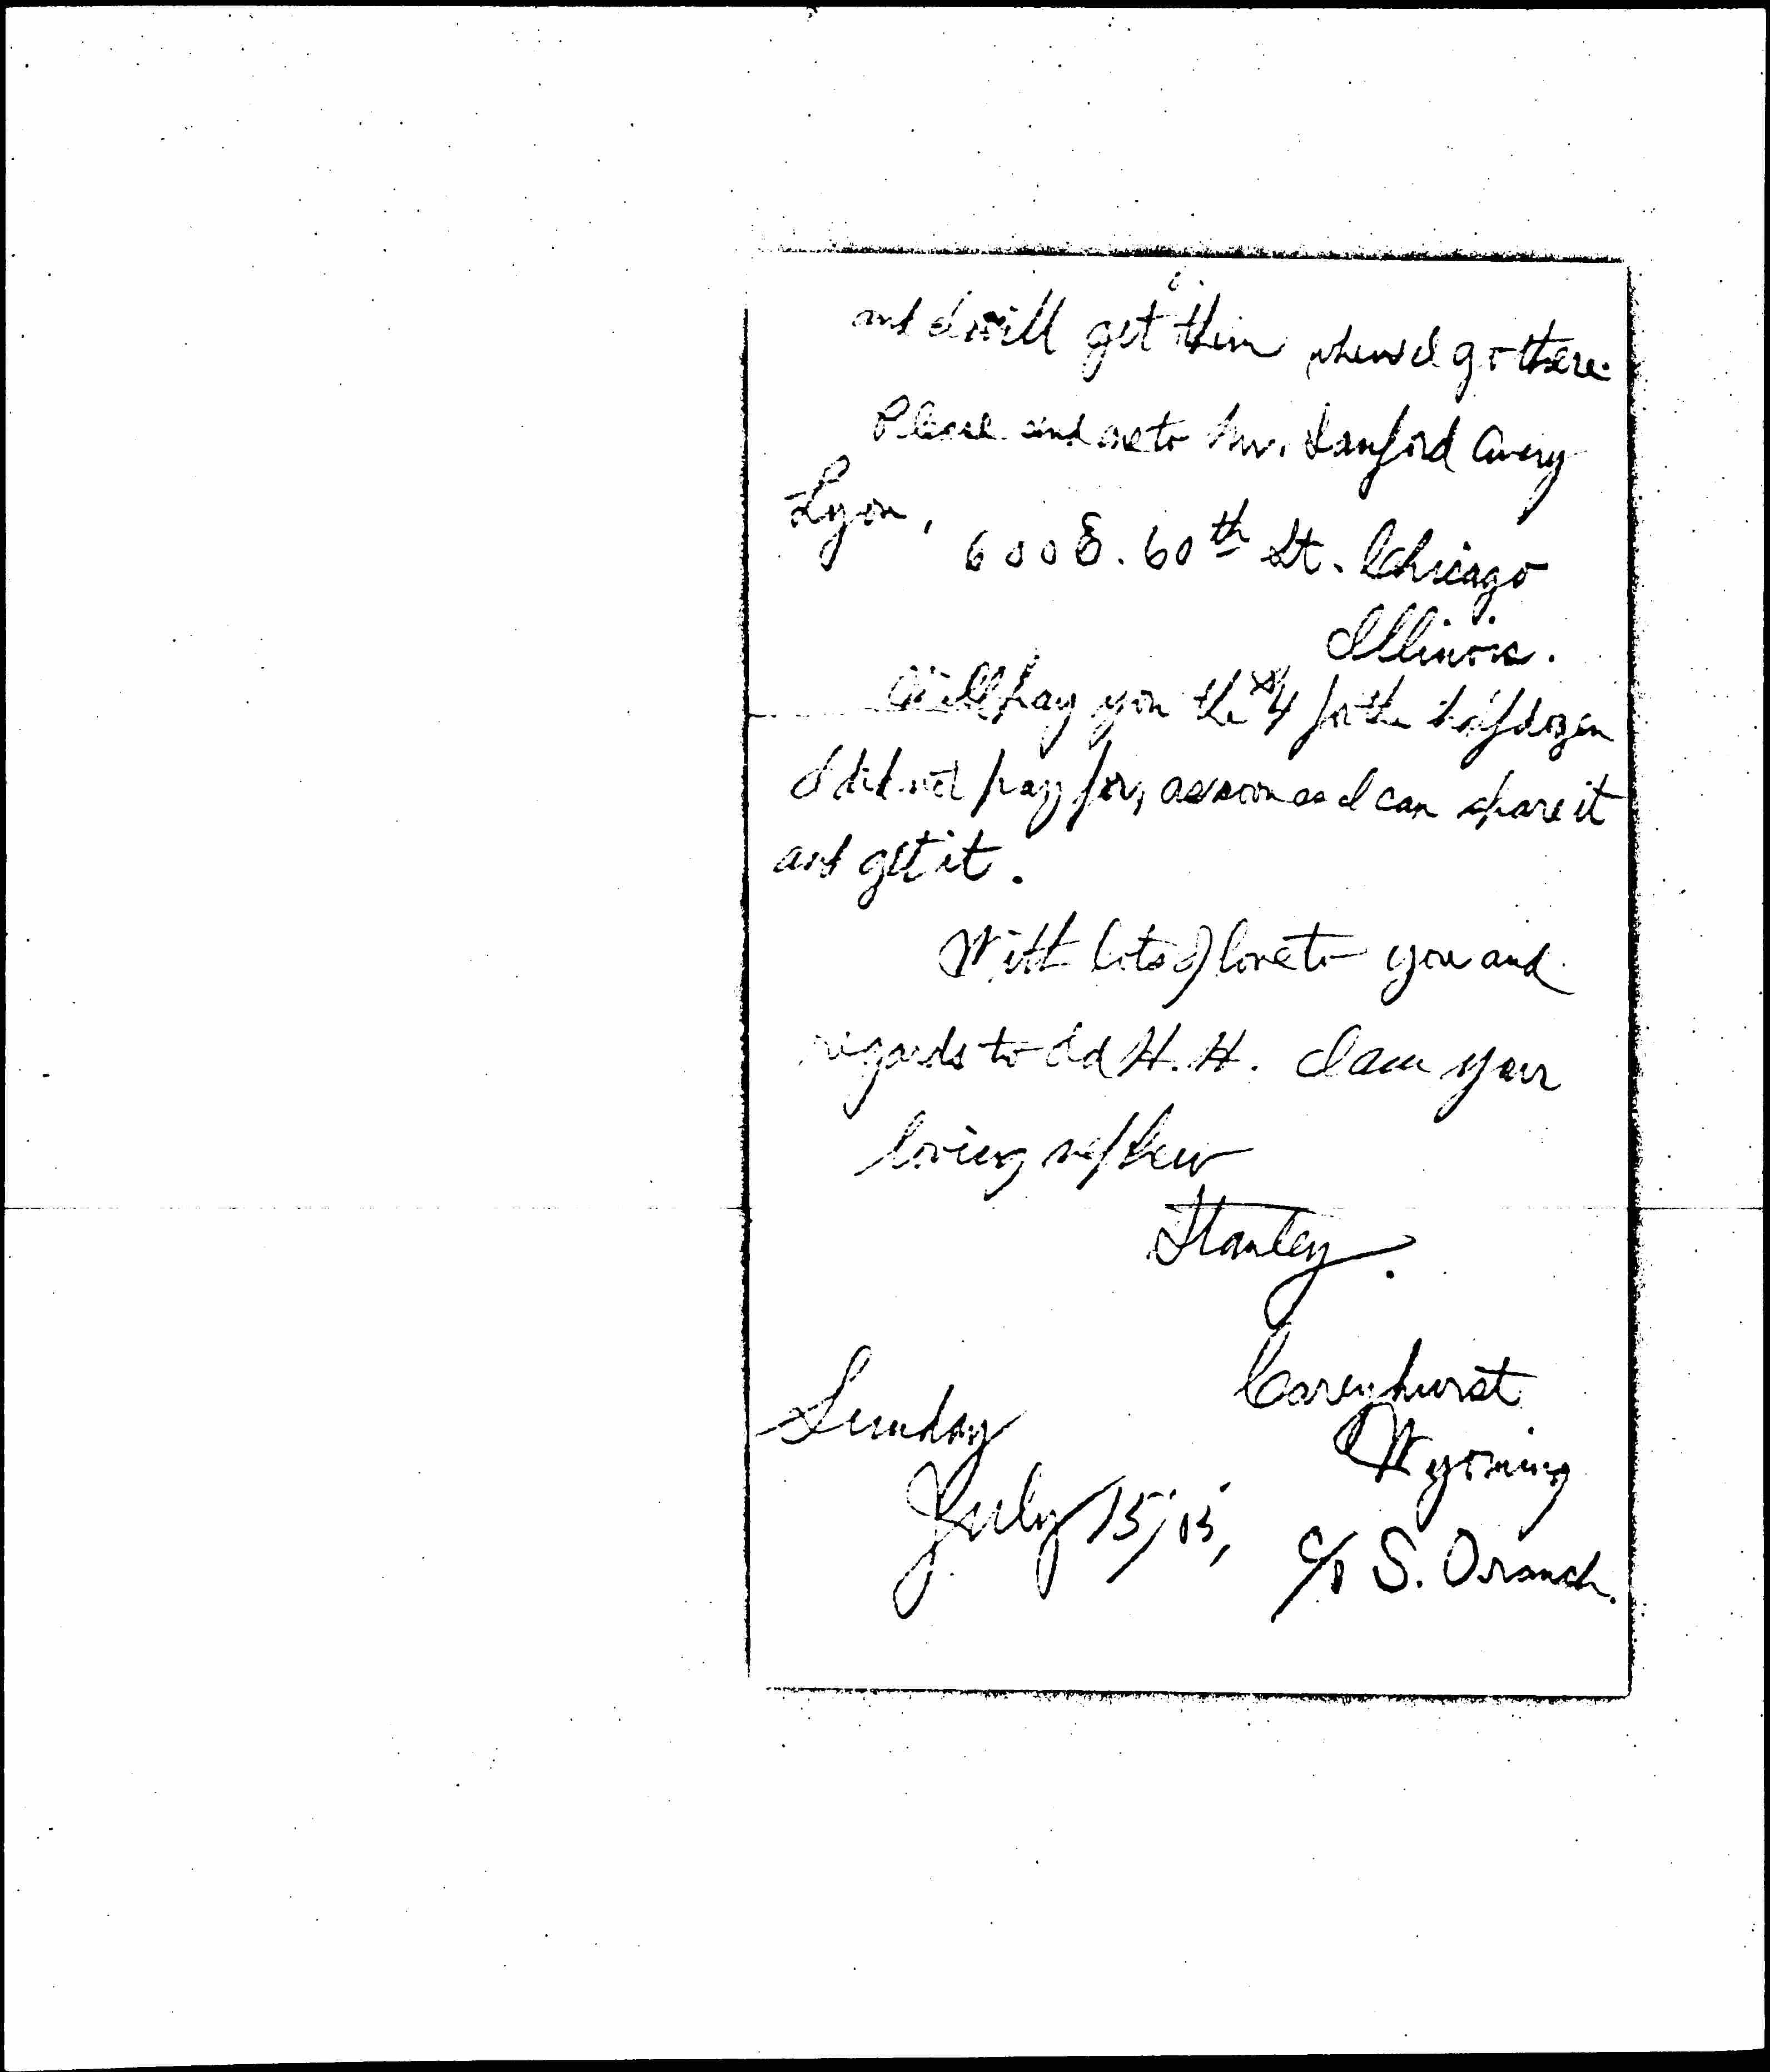 and I will get them when I go there.
Please send one to Mr. Sanford Avery
Lyon, 600 E. 60th St. Chicago
Illinois.
Will pay you the $4 for the half dozen
I did not pay for, as soon as I can spare it
and get it.
With lots of love to you and
regards to old H. H. I am your
loving nephew
Stanley.
Careyhurst
Sunday
Wyoming
July 15,
c/o S. O ranch.